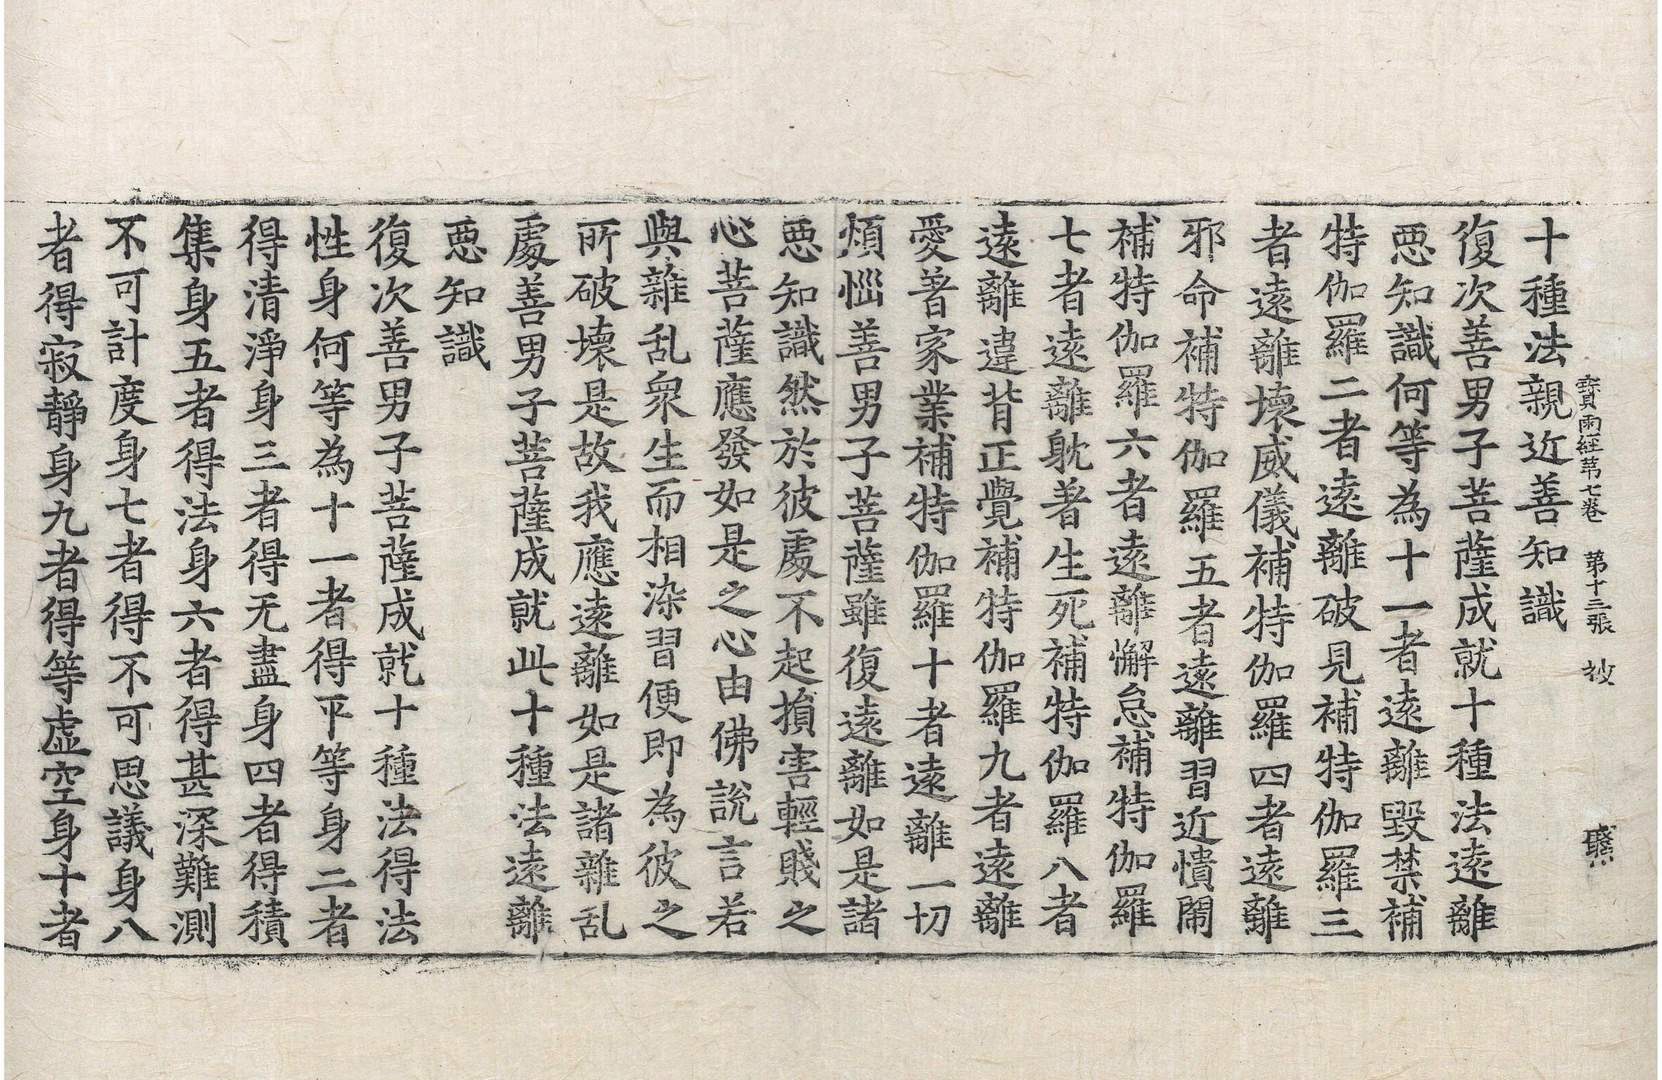 寶雨経苐七卷 第十三張 𥘉
十種法親近善知識
復次善男子菩薩成就十種法逺離
惡知識何等為十一者逺離毀禁補
特伽羅二者逺離破見補特伽羅三
者逺離壞威儀補特伽羅四者逺離
邪命補特伽羅五者逺離習近憒閙
補特伽羅六者逺離懈怠補特伽羅
七者逺離躭著生死補特伽羅八者
逺離違背正覺補特伽羅九者逺離
愛著家業補特伽羅十者逺離一切
煩惱善男子菩薩雖復逺離如是諸
惡知識然於彼處不起損害輕賤之
心菩薩應發如是之心由佛說言若
與雜乱衆生而相染習便即為彼之
所破壞是故我應逺離如是諸雜乱
處善男子菩薩成就此十種法逺離
惡知識
復次善男子菩薩成就十種法得法
性身何等為十一者得平等身二者
得清淨身三者得无盡身四者得積
集身五者得法身六者得甚深難測
不可計度身七者得不可思議身八
者得寂靜身九者得等虛空身十者